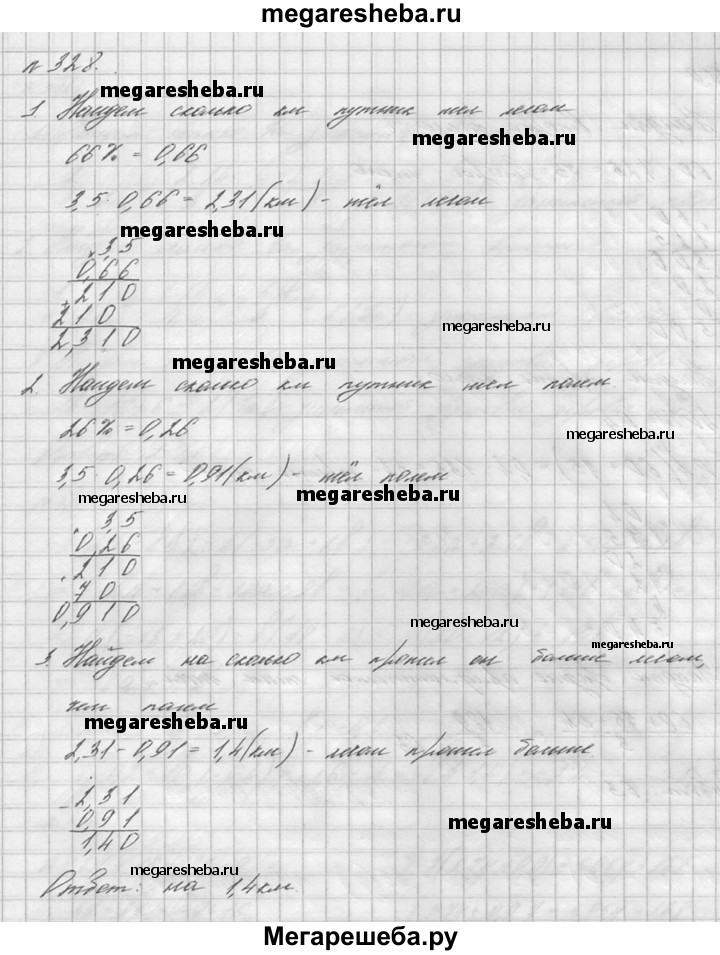 megaresheba.ru
№ 328.
megaresheba.ru
1 Найдем сколько км путник шел лесом
megaresheba.ru
66% = 0,66
3,5 · 0,66 = 2,31 (км) - шёл лесом
megaresheba.ru
3,5
0,66
+ 210
210
2,310
megaresheba.ru
megaresheba.ru
2. Найдем сколько км путник шел полем
26% = 0,26
megaresheba.ru
3,5 · 0,26 = 0,91 (км) - шёл полем
megaresheba.ru
megaresheba.ru
3,5
0,26
210
70
0,910
megaresheba.ru
megaresheba.ru
3. Найдем на сколько км прошел он больше лесом,
чем полем
megaresheba.ru
2,31 - 0,91 = 1,4 (км) - лесом прошел больше
- 2,31
0,91
1,40
megaresheba.ru
megaresheba.ru
Ответ: на 1,4 км.
Мегарешеба.ру